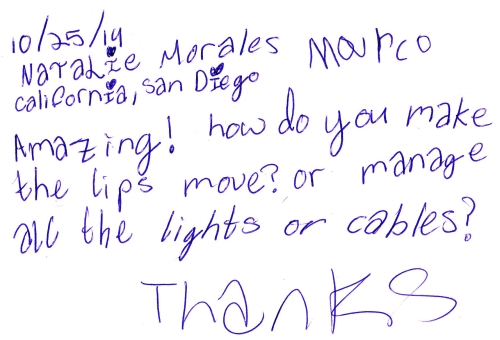 10/25/14
Natalie Morales Marco
california, san Diego
Amazing! how do you make
the lips move? or manage
all the lights or cables?
Thanks